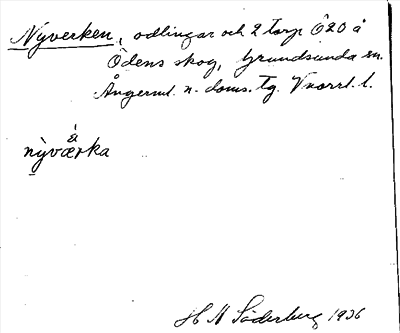 Nyverken, odlingar och 2 torp Ö20 å
Ödens skog, Grundsunda sn.
Ångerml. n. doms. tg. Vnorrl. l.
à
nyværka
H N Söderberg 1936